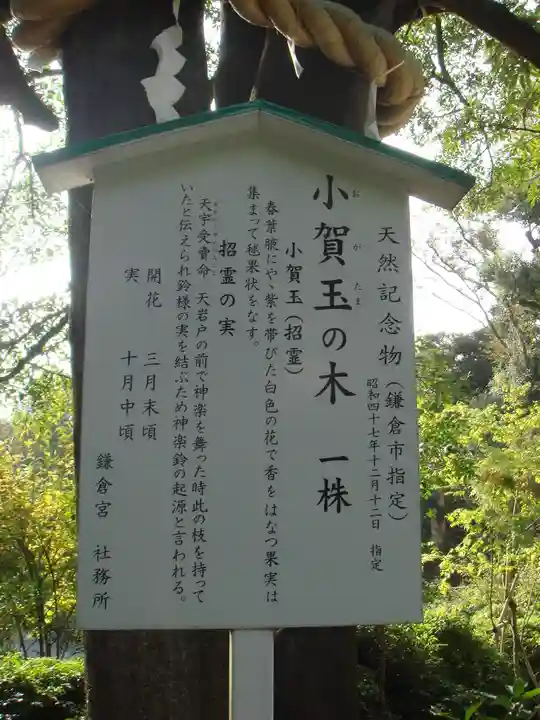 天然記念物(鎌倉市指定)
昭和四十七年十二月十二日 指定
小賀玉の木 一株
お が たま
小賀玉(招霊)
春葉腋にやゝ紫を帯びた白色の花で香をはなつ果実は
集まって毬果状をなす。
招霊の実
天宇受賣命 天岩戸の前で神楽を舞った時此の枝を持って
いたと伝えられ鈴様の実を結ぶため神楽鈴の起源と言われる。
開花 三月末頃
実 十月中頃
鎌倉宮 社務所